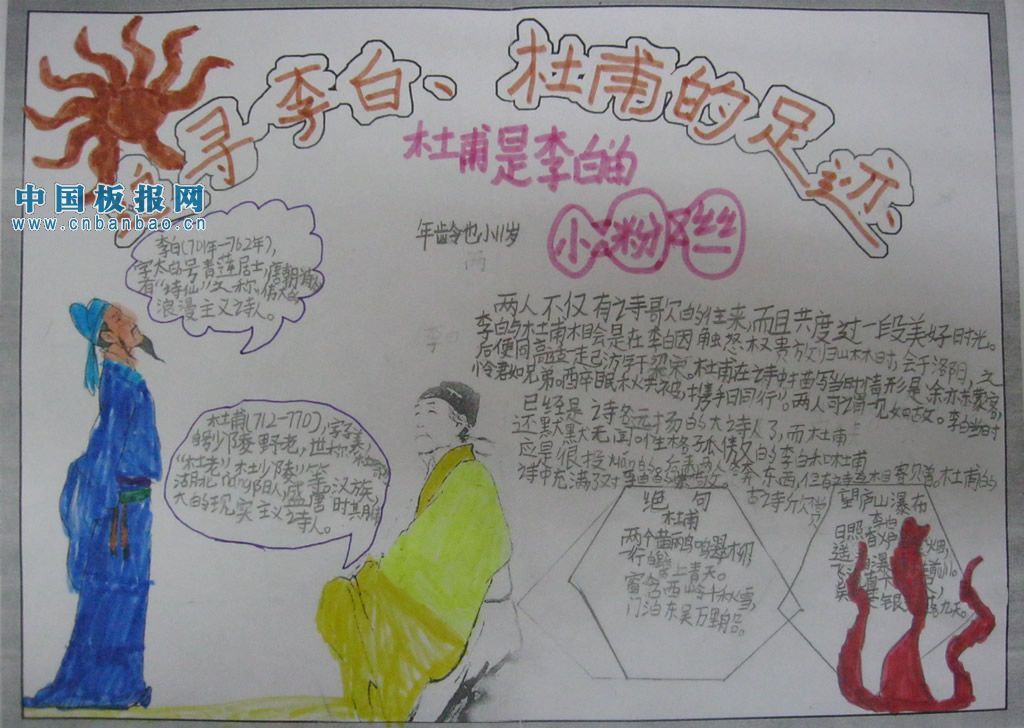 寻李白、杜甫的足迹
中国板报网
www.cnbanbao.cn
杜甫是李白的
小粉丝
年龄也小11岁
李白(701年-762年),
字太白号青莲居士,唐朝诗人
有"诗仙"之称,伟大的
浪漫主义诗人。
杜甫(712-770),字子美,
自号少陵野老,世称
"杜老","杜少陵"等,汉族,
湖北nang阳人,盛唐时其
大的现实主义诗人。
两人不仅有诗歌的往来,而且共度过一段美好时光。
李白与杜甫相会是在李白因触怒权贵放归山林时,会于洛阳,之
后便同高走已游于梁宋。杜甫在诗中描写当时情形是"余亦东蒙客,
怜君如兄弟。醉眠秋共被,携手日同行"。两人可谓一见如故。李白当时
已经是诗名远扬的大诗人了,而杜甫
还默默无闻。性格孤傲的李白和杜甫
应是很投
诗中充满了对 杜甫的
古诗欣赏
绝句
杜甫
两个黄鹂鸣翠柳,
一行白鹭上青天。
窗含西岭千秋雪,
门泊东吴万里船。
望庐山瀑布
李白
日照香炉
九天。